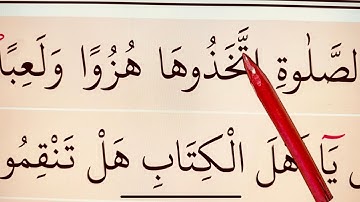 الصَّلٰوةِ اتَّخَذُوهَا هُزُوًا وَلَعِبًا
يَآ أَهْلَ الْكِتَابِ هَلْ تَنْقِمُو